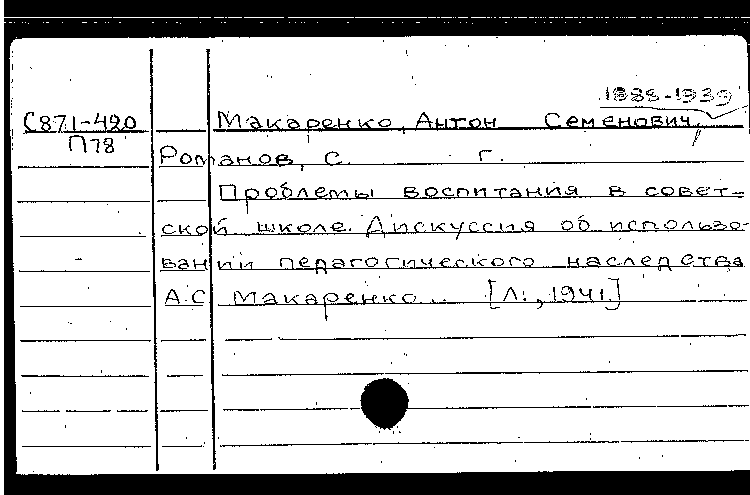 1888-1939
С871-420 Макаренко, Антон Семенович,
П78
Романов, С. Г.
Проблемы воспитания в совет-
ской школе. Дискуссия об использо-
вании педагогического наследства
А.С. Макаренко... [Л., 1941.]